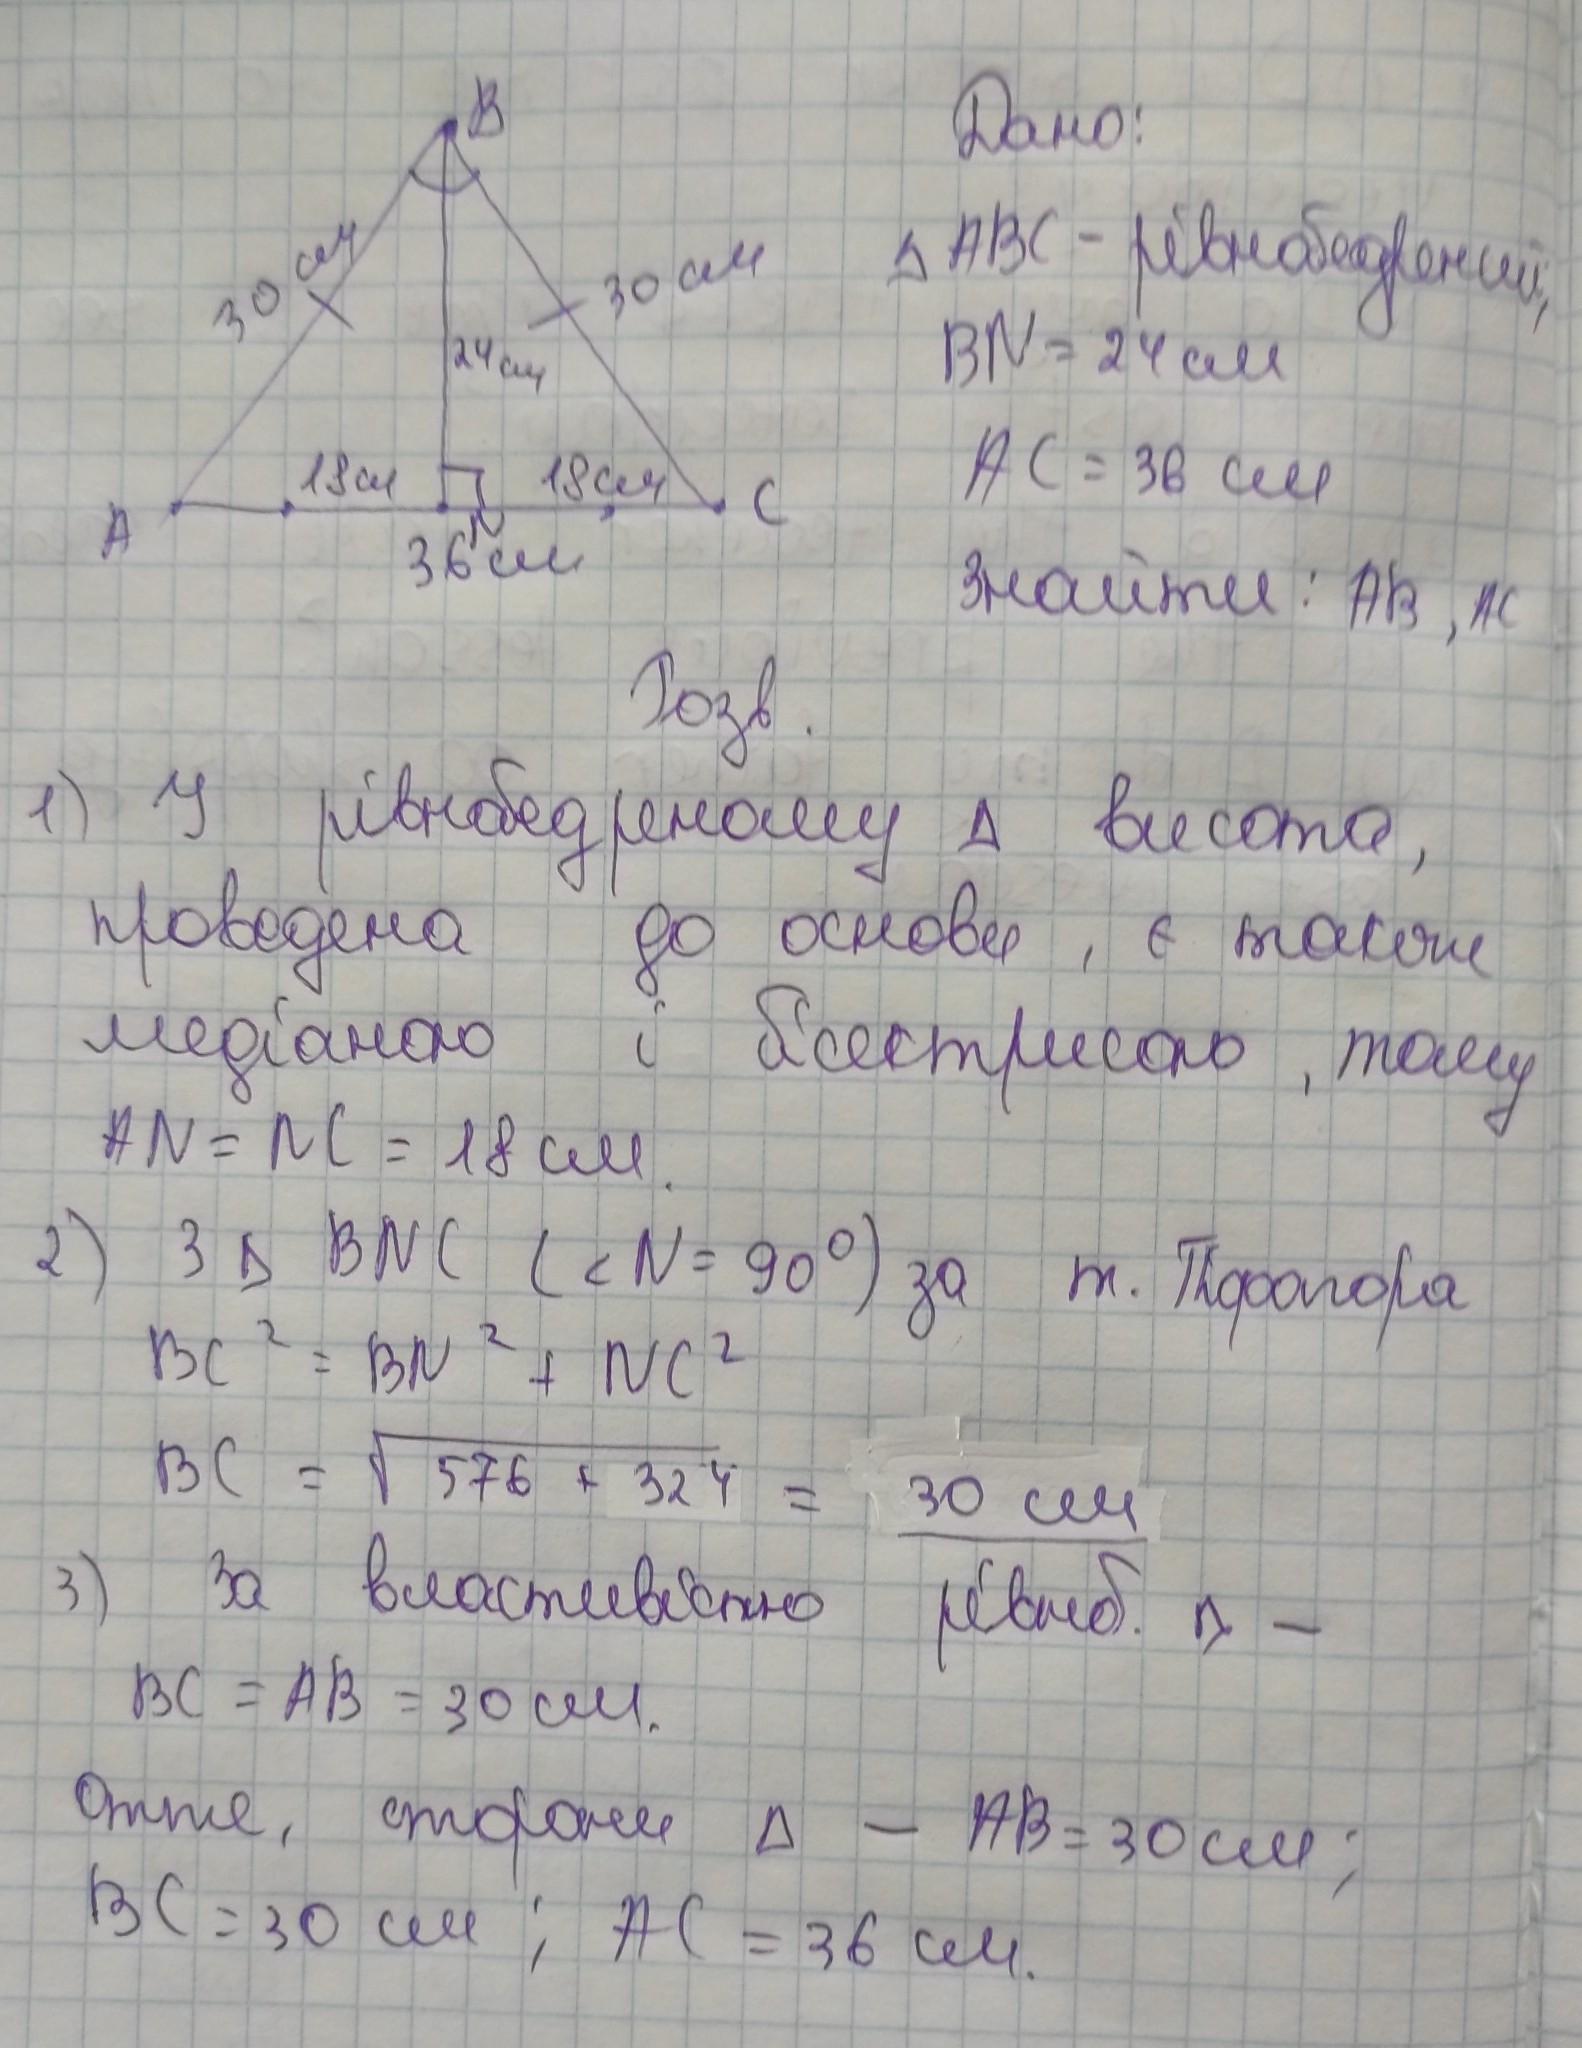 B
30 см
30 см
24 см
18 см
18 см
A
N
C
36 см
Дано:
Δ ABC - рівнобедрений,
BN = 24 см
AC = 36 см
Знайти: AB, AC
Розв.
1) У рівнобедреному Δ висота,
проведена до основи, є також
медіаною і бісектрисою, тому
AN = NC = 18 см.
2) З Δ BNC (<N = 90°) за т. Піфагора
BC² = BN² + NC²
BC = √576 + 324 = 30 см
3) За властивістю рівноб. Δ —
BC = AB = 30 см.
Отже, сторони Δ — AB = 30 см;
BC = 30 см; AC = 36 см.